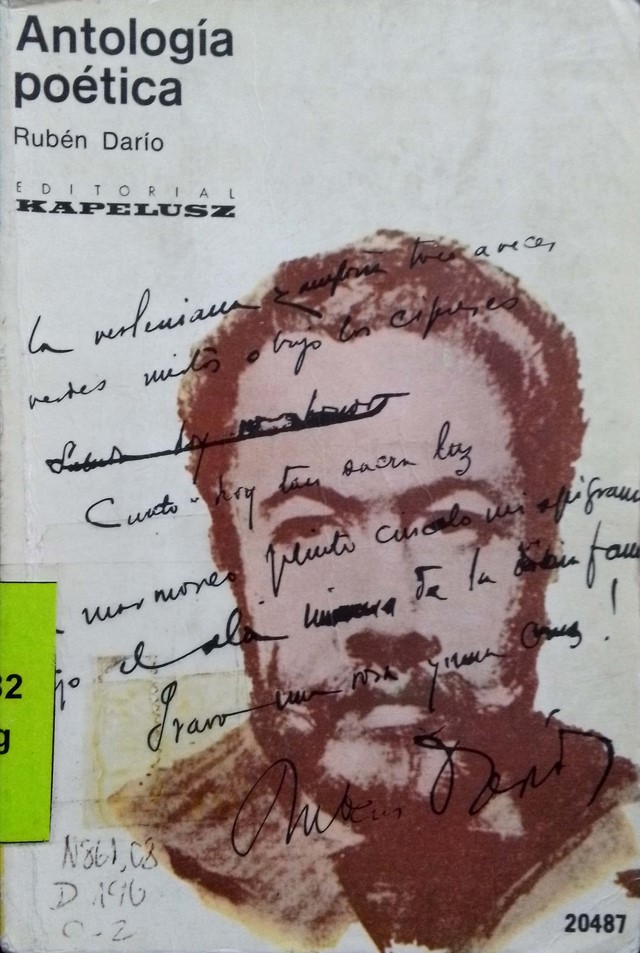 Antología
poética
Rubén Darío
EDITORIAL
KAPELUSZ
La verleniana zampoña toco a veces
verdes mirtos o bajo los cipreses
Canto hoy tan sacra luz
marmóreo plinto cincelo mi epigram
jo el ala de la
Gravo una rosa y una cruz!
Rubén Darío
32
g
N861,08
D
20487